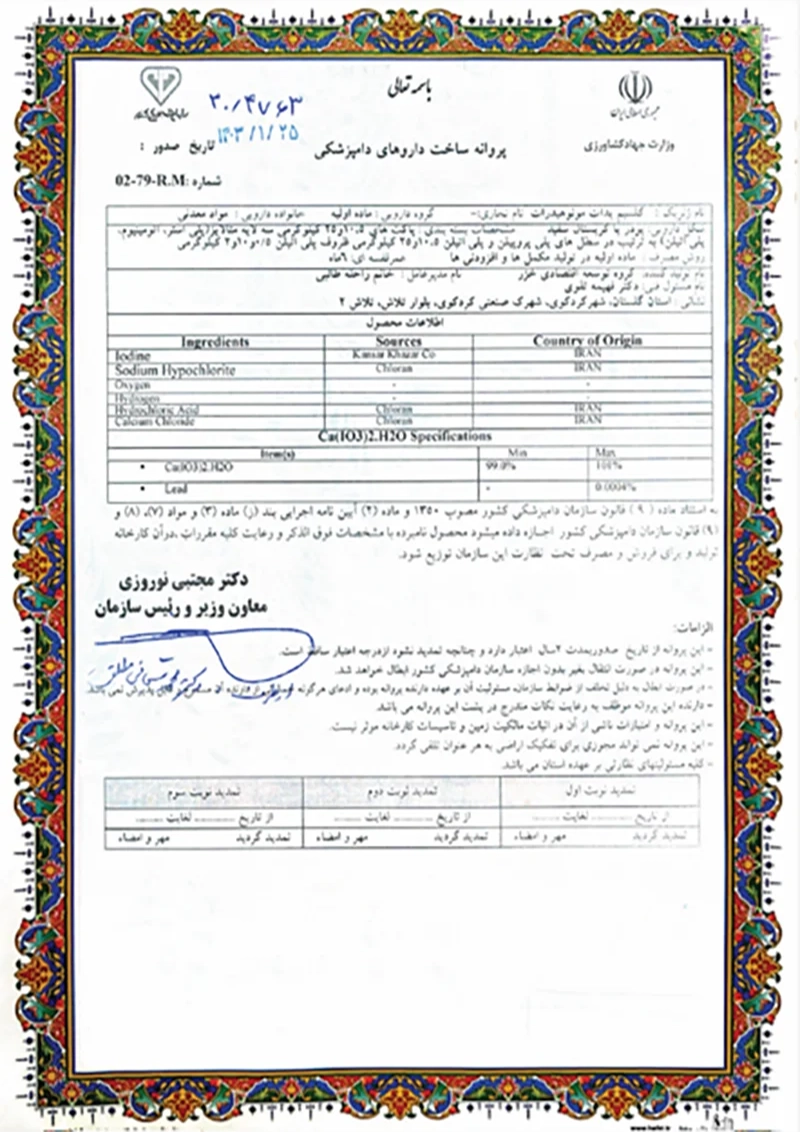 باسمه تعالی
جمهوری اسلامی ایران
وزارت جهادکشاورزی
پروانه ساخت داروهای دامپزشکی
۳۰/۴۷۶۳
تاریخ صدور : ۱۴۰۳/۱/۲۵
شماره :02-79-R.M
نام ژنریک : کلسیم یدات مونوهیدرات نام تجاری:- گروه دارویی : ماده اولیه خانواده دارویی : مواد معدنی
شکل دارویی: پودر یا کریستال سفید مشخصات بسته بندی : پاکت های ۱۰،۵و۲۵ کیلوگرمی سه لایه متالایز(پلی استر، آلومینیوم،
پلی اتیلن) به ترتیب در سطل های پلی پروپیلن و پلی اتیلن ۱۰،۵و۲۵ کیلوگرمی ظروف پلی اتیلن ۰/۵و۱و۲ کیلوگرمی
روش مصرف : ماده اولیه در تولید مکمل ها و افزودنی ها عمرقفسه ای: ۶ماه
نام تولید کننده: گروه توسعه اقتصادی خزر نام مدیرعامل : خانم راحله طالبی
نام مسئول فنی: دکتر فهیمه تقوی
نشانی : استان گلستان، شهرکردکوی، شهرک صنعتی کردکوی، بلوار تلاش، تلاش ۲
اطلاعات محصول
Ingredients Sources Country of Origin
Iodine Kansar Khazar Co IRAN
Sodium Hypochlorite Chloran IRAN
Oxygen - -
Hydrogen - -
Hydrochloric Acid Chloran IRAN
Calcium Chloride Chloran IRAN
Ca(IO3)2.H2O Specifications
Item(s) Min Max
• Ca(IO3)2.H2O 99.0% 101%
• Lead - 0.0004%
به استناد ماده ( ۹ ) قانون سازمان دامپزشکی کشور مصوب ۱۳۵۰ و ماده (۲) آیین نامه اجرایی بند (ز) ماده (۳) و مواد (۷)، (۸) و
(۹) قانون سازمان دامپزشکی کشور اجازه داده میشود محصول نامبرده با مشخصات فوق الذکر و رعایت کلیه مقررات ،درآن کارخانه
تولید و برای فروش و مصرف تحت نظارت این سازمان توزیع شود.
دکتر مجتبی نوروزی
معاون وزیر و رئیس سازمان
الزامات:
- این پروانه از تاریخ صدوربمدت ۲سال اعتبار دارد و چنانچه تمدید نشود ازدرجه اعتبار ساقط است.
- این پروانه در صورت انتقال بغیر بدون اجازه سازمان دامپزشکی کشور ابطال خواهد شد.
- در صورت ابطال به دلیل تخلف از ضوابط سازمان، مسئولیت آن بر عهده دارنده پروانه بوده و ادعای هرگونه از دارنده آن پذیرش نمی باشد.
- دارنده این پروانه موظف به رعایت نکات مندرج در پشت این پروانه می باشد.
- این پروانه و امتیازات ناشی از آن در اثبات مالکیت زمین و تاسیسات کارخانه موثر نیست.
- این پروانه نمی تواند مجوزی برای تفکیک اراضی به هر عنوان تلقی گردد.
- کلیه مسئولیتهای نظارتی بر عهده استان می باشد.
تمدید نوبت اول تمدید نوبت دوم تمدید نوبت سوم
از تاریخ ............ لغایت ........ از تاریخ ............ لغایت ........ از تاریخ ............ لغایت ........
تمدید گردید مهر و امضاء تمدید گردید مهر و امضاء تمدید گردید مهر و امضاء